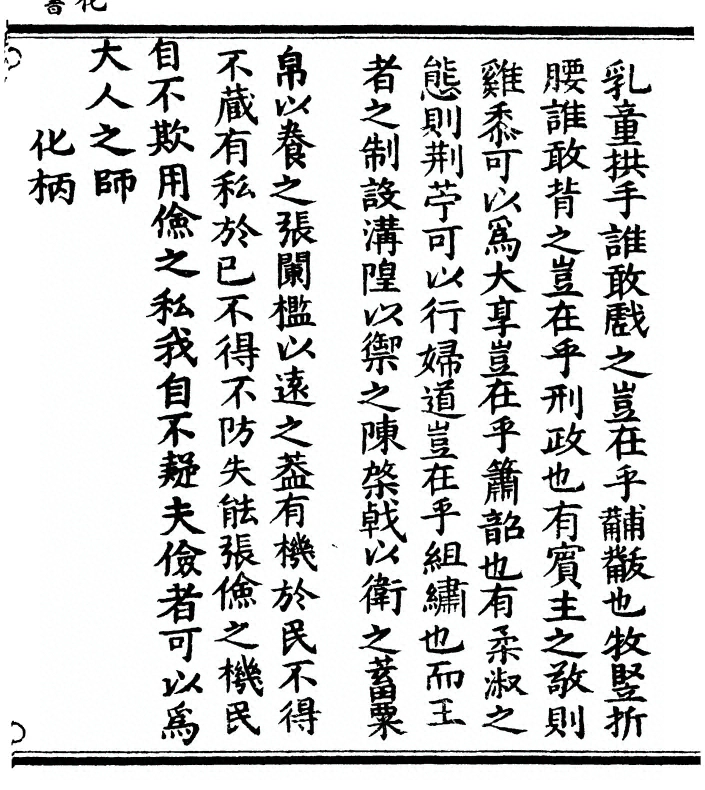 乳童拱手誰敢戲之豈在乎黼黻也牧豎折
腰誰敢背之豈在乎刑政也有賓主之敬則
雞黍可以爲大享豈在乎簫韶也有柔淑之
態則荆苧可以行婦道豈在乎組繡也而王
者之制設溝隍以禦之陳棨戟以衛之蓄粟
帛以養之張闌檻以遠之葢有機於民不得
不藏有私於己不得不防夫能張儉之機民
自不欺用儉之私我自不疑夫儉者可以爲
大人之師
化柄